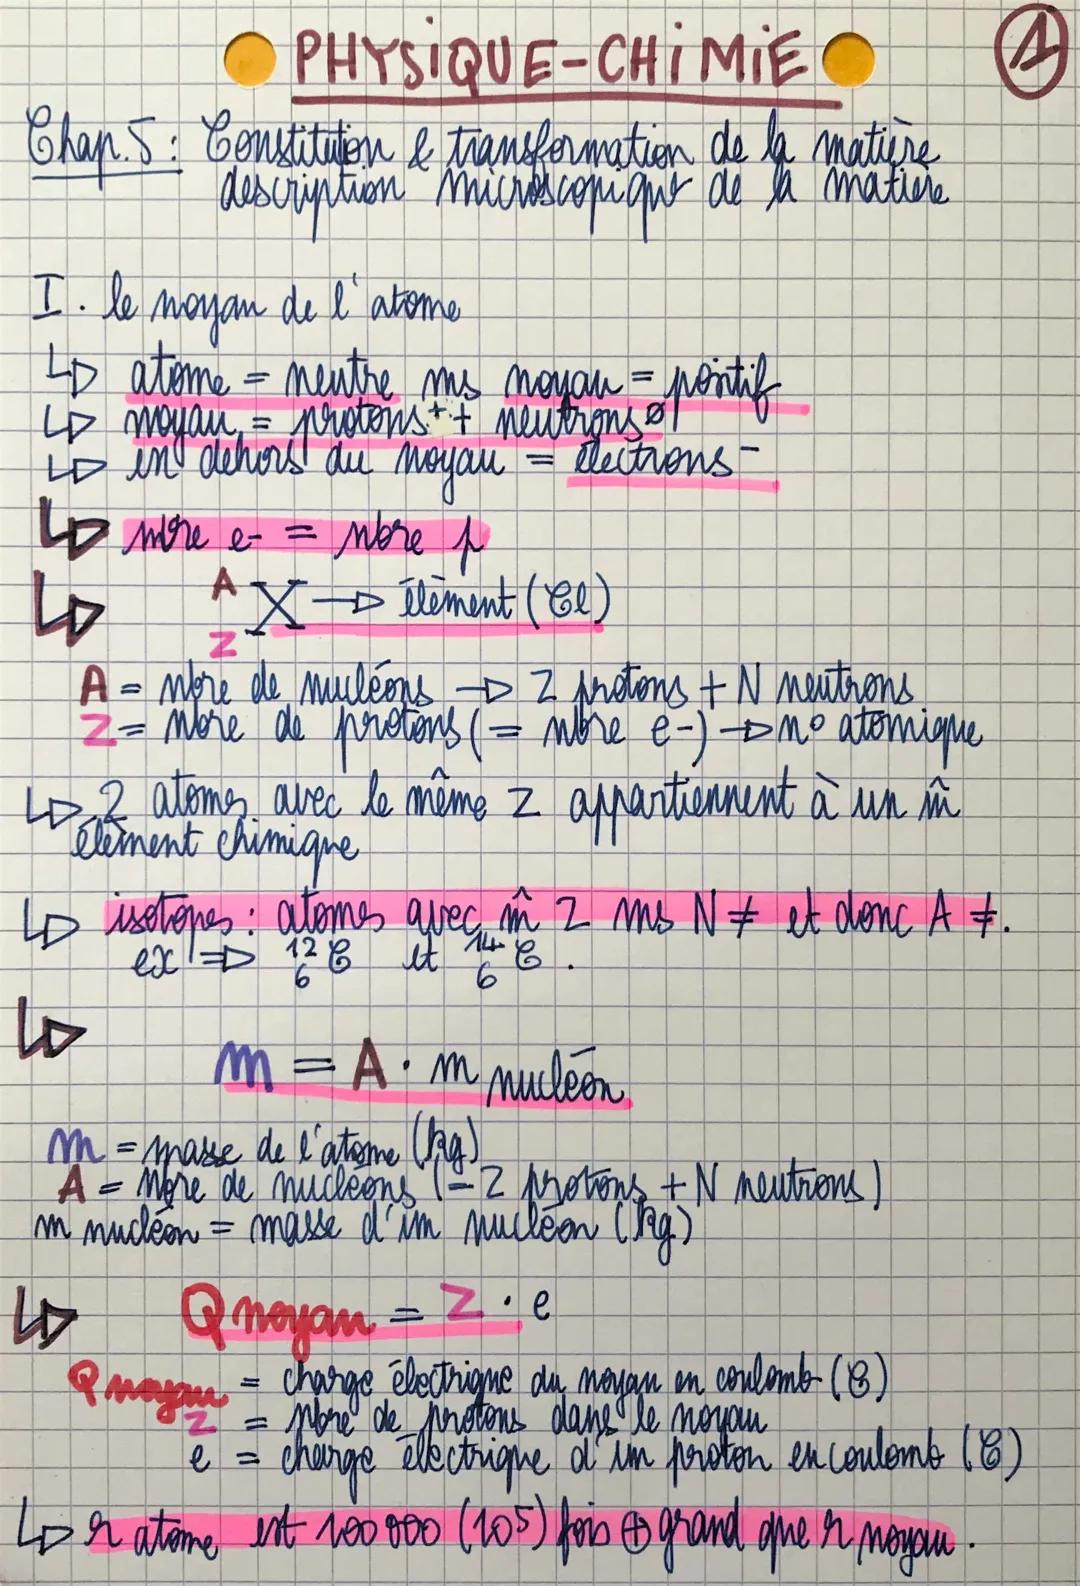 PHYSIQUE-CHIMIE
1
Chap.5: Constitution & transformation de la matière
description microscopique de la matière
I. le noyau de l'atome
↳ atome = neutre ms noyau = positif
↳ noyau = protons⁺ + neutrons ø
↳ en dehors du noyau = électrons⁻
↳ nbre e- = nbre p
↳ A Z X → élèment (Cl)
A = nbre de nucléons → Z protons + N neutrons
Z = nbre de protons (= nbre e-) → n° atomique
↳ 2 atomes avec le même Z appartiennent à un m̂
élèment chimique
↳ isotopes: atomes avec m̂ Z ms N ≠ et donc A ≠.
ex ⇒ ¹²₆C et ¹⁴₆C.
↳ m = A · m nucléon
m = masse de l'atome (kg)
A = Nbre de nucléons (= Z protons + N neutrons)
m nucléon = masse d'un nucléon (kg)
↳ Q noyau = Z · e
Q noyau = charge électrique du noyau en coulomb (C)
Z = nbre de protons dans le noyau
e = charge électrique d'un proton en coulomb (C)
↳ r atome est 100 000 (10⁵) fois ⊕ grand que r noyau.